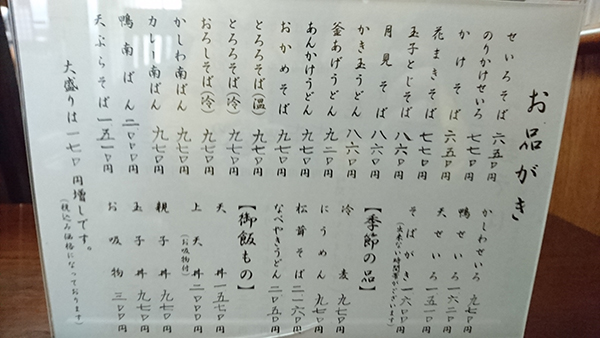 お品がき
せいろそば 六五〇円
のりかけせいろ 七七〇円
かけそば 六五〇円
花まきそば 七七〇円
玉子とじそば 八六〇円
月見そば 八六〇円
かき玉うどん 八六〇円
釜あげうどん 九二〇円
あんかけうどん 九七〇円
おかめそば 九七〇円
とろろそば(温) 九七〇円
とろろそば(冷) 九七〇円
おろしそば(冷) 九七〇円
かしわ南ばん 九七〇円
カレー南ばん 九七〇円
鴨南ばん 二〇〇〇円
天ぷらそば 一五一〇円
かしわせいろ 九七〇円
鴨せいろ 一六二〇円
天せいろ 一五一〇円
そばがき 一六〇〇円
(出来ない時間帯がございます)
【季節の品】
冷麦 九七〇円
にうめん 九七〇円
松茸そば 二一六〇円
なべやきうどん 二〇五〇円
【御飯もの】
天丼 一五七〇円
上天丼 二〇〇〇円
(お吸物付)
親子丼 九七〇円
玉子丼 九七〇円
お吸物 三〇〇円
大盛りは一七〇円増しです。
(税込み価格になっております)